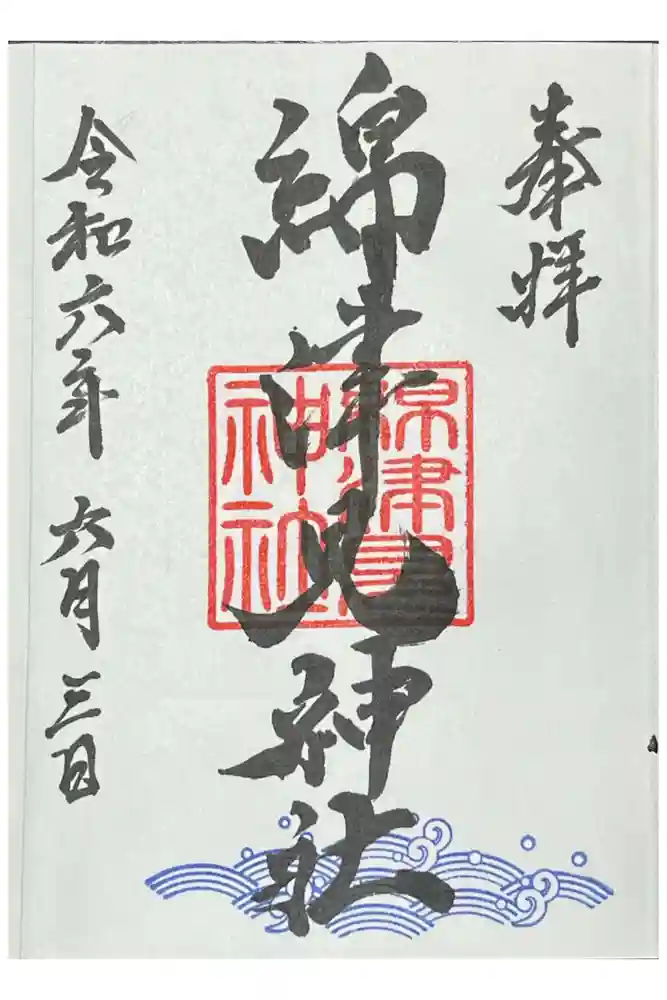 奉拝
綿津見神社
綿津見
神社
令和六年 六月三日